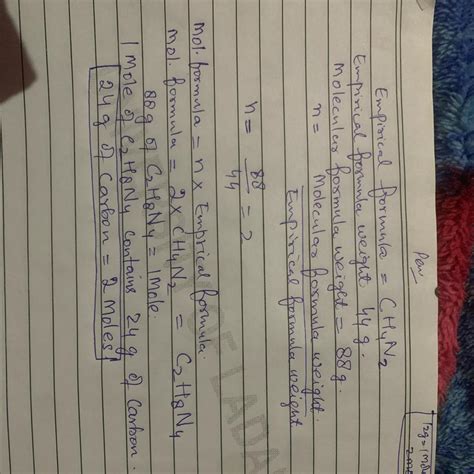 Empirical formula = CH4N2
Empirical formula weight 44 g.
Molecular formula weight = 88g.
n = Molecular formula weight.
Empirical formula weight
n = 88 = 2
44
Mol. formula = n x Empirical formula.
Mol. formula = 2 x CH4N2 = C2H8N4
88g of C2H8N4 = 1 Mole.
1 Mole of C2H8N4 contains 24g of Carbon.
24g of Carbon = 2 Moles
12g = 1 Mole
OF LADA